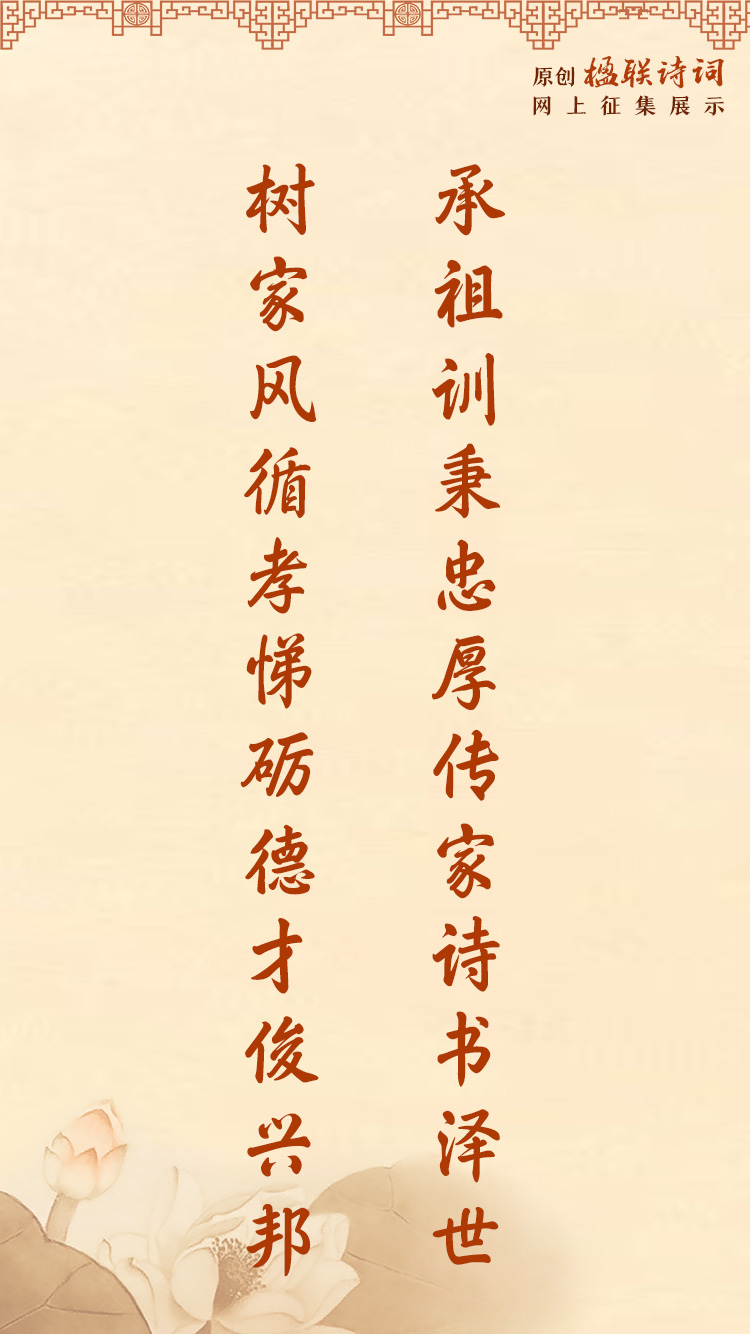 原创楹联诗词
网上征集展示
承祖训秉忠厚传家诗书泽世
树家风循孝悌砺德才俊兴邦